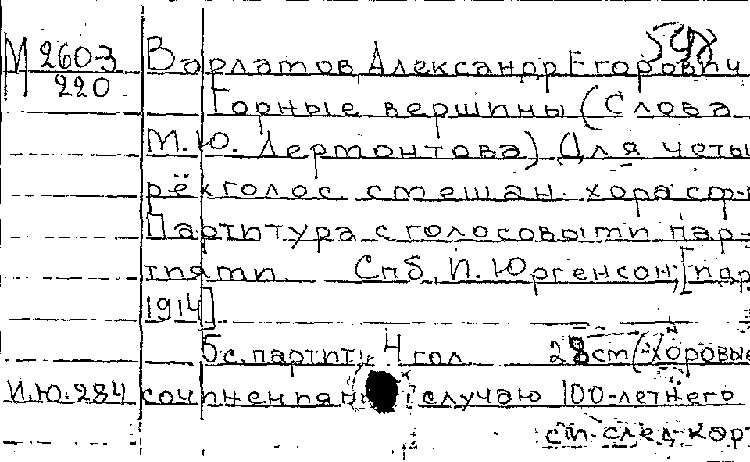 548
М 260-3 Варламов, Александр Егорович
220 Горные вершины (Слова
М.Ю. Лермонтова) Для четы-
рёхголос смешан. хора с ф-
Партитура с голосовыми пар-
тиями Спб, И. Юргенсон, [
1914]
5 с. партит., 4 гол 28 см (Хоровые
И.Ю. 284 сочинения случаю 100-летнего
см. след. кар